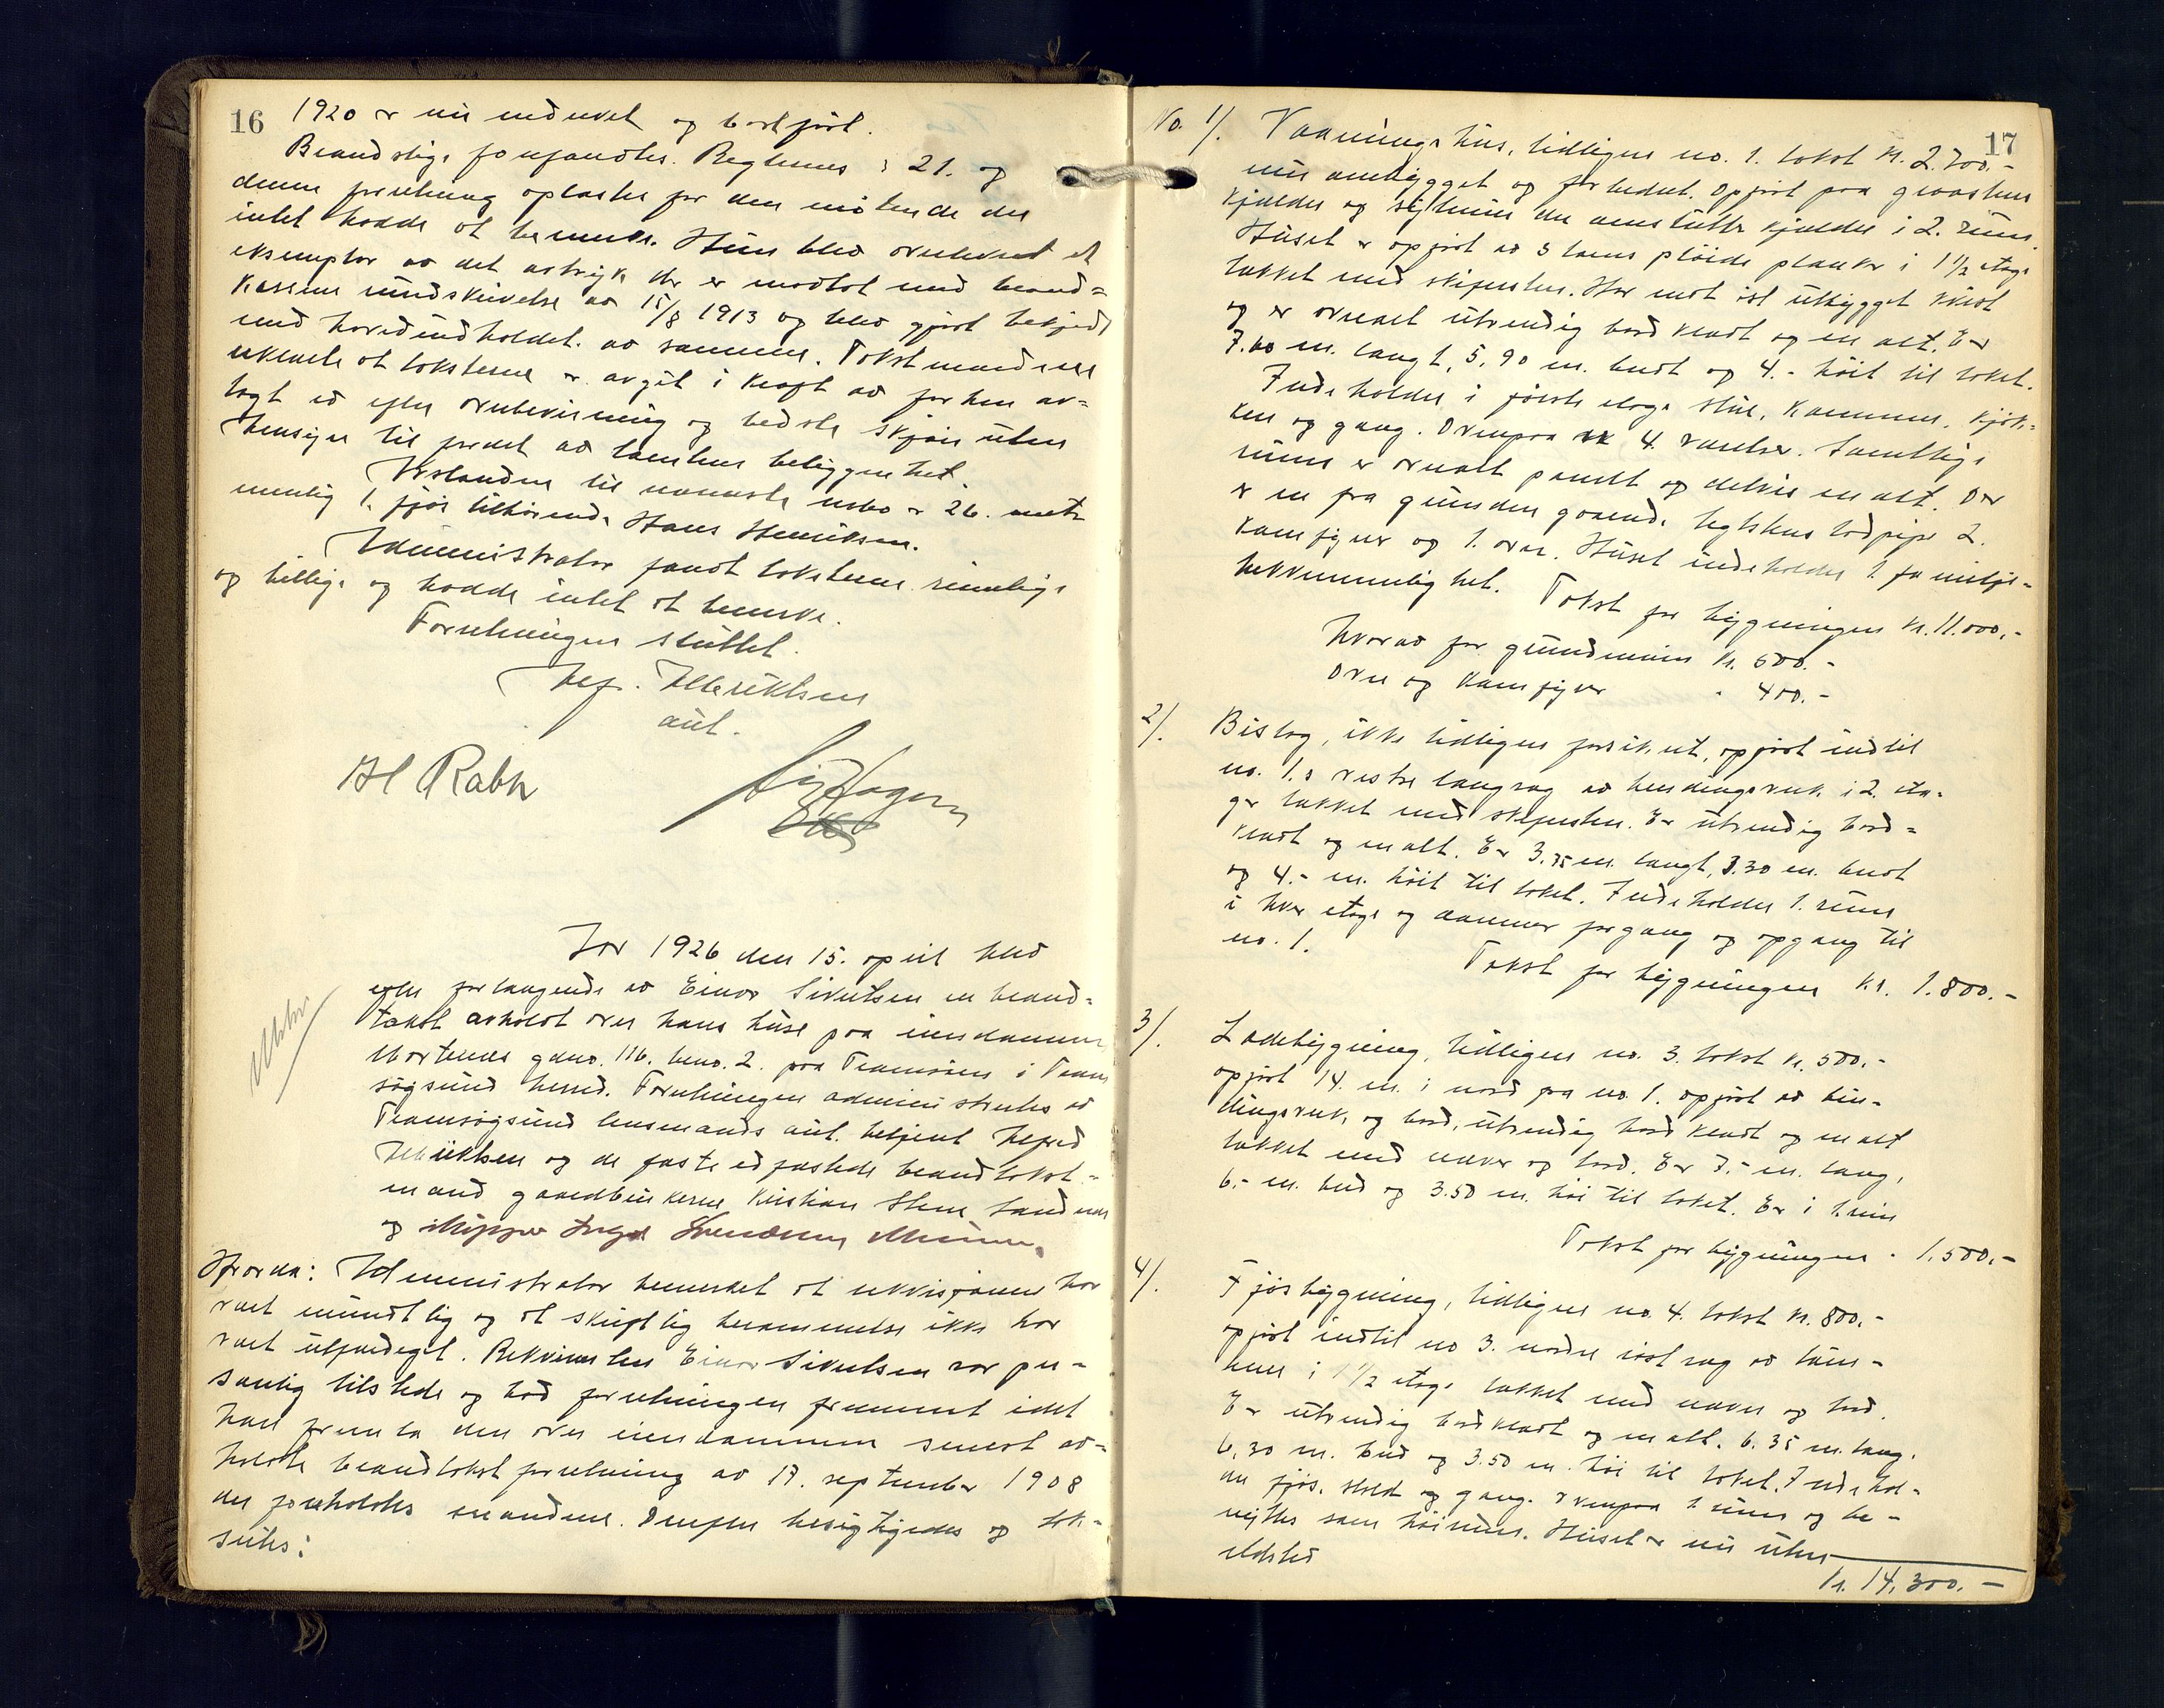 16
1920 er nu nedrevet og bortført.
Brandslige forefandtes. Reglernes § 21. og
denne forretning oplæstes for den møtende der
intet hadde at bemerke. Hun blev overlevert et
eksemplar av det avtryk der er mottat med brand=
kassens rundskrivelse av 15/8 1913 og blev gjort bekjendt
med hovedindholdet av samme. Takstmændene
erklærte at taksterne er avgit i kraft av forhen av=
lagt ed efter overbevisning og bedste skjøn uten
hensyn til prisen av tomtens beliggenhet.
Avstanden til nærmeste nabo er 26. meter
nemlig 1. fjøs tilhørende Hans Henriksen.
Administrator fandt taksterne rimelige
og billige og hadde intet at bemerke.
Forretningen sluttet.
Alf. Albriktsen
aut.
H Rabn
Aar 1926 den 15. april blev
efter forlangende av Einar Sivertsen en brand=
takst avholdt over hans huse paa eiendommen
Mortenes gdno. 116. bno. 2. paa Tromsøen i Trom
søysund herred. Forretningen administrertes av
Tromsøysund lensmands aut. betjent Alfred
Albriktsen og de faste edfæstede brandtakst=
mænd gaardbrukerne Kristian Stene Sandnes
og skipper
Hvorda: Administrator bemerket at rekvisisjonen har
vært mundtlig og at skriftlig berammelse ikke har
vært utfærdiget. Rekvirenten Einar Sivertsen var per=
sonlig tilstede og bad forretningen fremmet idet
han fremla den over eiendommen senest av=
holdte brandtakstforretning av 17. september 1908
der foreholdtes mændene. Derefter besigtigedes og tak=
sertes:
17
No. 1/. Vaaningshus, tidligere no. 1. takst kr. 2.700.-
nu ombygget og forbedret. Opført paa graastens
kjelder og inndelt kjelder i 2. rum.
Huset er opført av 3 toms pløide planker i 1 1/2 etage
tækket med skifersten. Har mot øst utbygget kvist
og er overalt utvendig bordklædt og malt. Er
7.60 m. langt, 5,90 m. bredt og 4.- høit til taket.
Indeholder i første etage stue, kammer, kjøk=
ken og gang. Ovenpaa er 4. værelser. Samtlige
rum er overalt panelt og delvis malt. Der
er en fra grunden gaaende teglstens lodpipe 2.
komfyrer og 1. ovn. Huset indeholder 1. familje=
bekvemmelighet. Takst for bygningen kr. 11.000,-
hvorav for grundmuren kr. 600.-
Ovn og komfyrer " 400.-
2/. Bislag, ikke tidligere forsikret, opført indtil
no. 1.s vestre langvæg av bindingsverk i 2. eta=
ger tækket med skifersten. Er utvendig bord=
klædt og malt. Er 3.75 m. langt, 3.30 m. bredt
og 4.- m. høit til taket. Indeholder 1. rum
i hver etage og danner forgang og opgang til
no. 1.
Takst for bygningen Kr. 1.800.-
3/. Ladebygning, tidligere no. 3. takst kr. 500.-
opført 14. m. i nord fra no. 1. opført av bin=
dingsverk og bord, utvendig bordklædt og malt
tækket med næver og torv. Er 7.- m. lang,
6.- m. bred og 3.50 m. høi til taket. Er i 1. rum
Takst for bygningen " 1.500.-
4/. Fjøsbygning, tidligere no. 4. takst kr. 800.-
opført indtil no 3. nordre væg av tøm=
mer i 1 1/2 etage tækket med næver og torv.
Er utvendig bordklædt og malt. 6.35 m. lang.
6,30 m. bred og 3.50 m. høi til taket. Indehol=
der fjøs, stald og gang. Ovenpaa 1 rum og be=
nyttes som høirum. Huset er nu uten
ildsted
Kr. 14.300.-